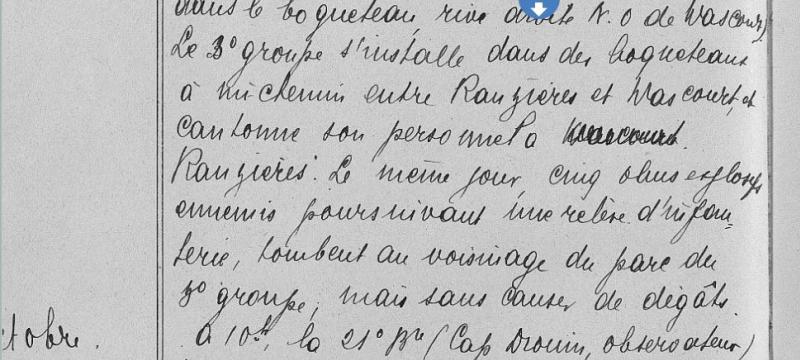 dans le boqueteau, rive droite N.O de Wascourt)
Le 3e groupe s'installe dans des boqueteaux
à mi chemin entre Ranzières et Wascourt, et
cantonne son personnel à Wascourt
Ranzières. Le même jour, cinq obus explosifs
ennemis poursuivant une relève d'infan-
terie, tombent au voisinage du parc du
3e groupe, mais sans causer de dégâts.
ctobre.
à 10h, la 21e Bie (Cap Drouin, observateur)